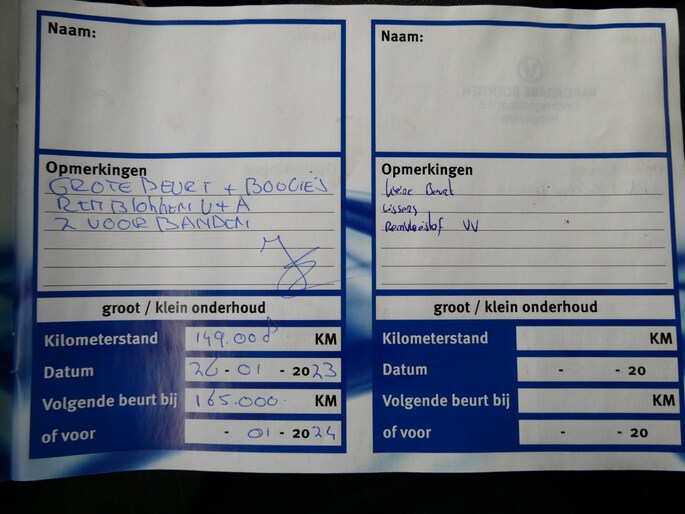 Naam:
Opmerkingen
GROTE BEURT + BOUGIES
REMBLOKKEN V + A
2 VOOR BANDEN
groot / klein onderhoud
Kilometerstand 149.000 KM
Datum 26 - 01 - 2023
Volgende beurt bij 165.000 KM
of voor - 01 - 2024
Naam:
Opmerkingen
Beurt
Remvloeistof VV
groot / klein onderhoud
Kilometerstand KM
Datum - - 20
Volgende beurt bij KM
of voor - - 20